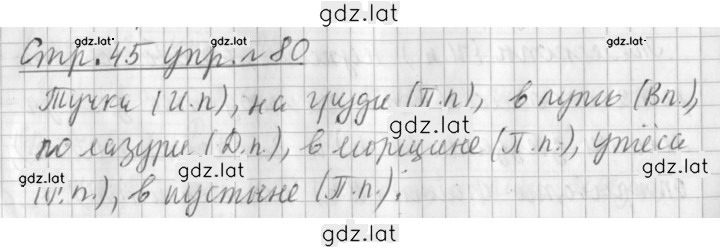 gdz.lat
gdz.lat gdz.lat
Стр. 45 упр. № 80
gdz.lat
Тучка (И.п), на груди (П.п), в путь (Вп.),
gdz.lat
по лазури (Д.п.), в морщине (П.п.), утёса
gdz.lat gdz.lat
.п.), в пустыне (П.п.).
gdz.lat